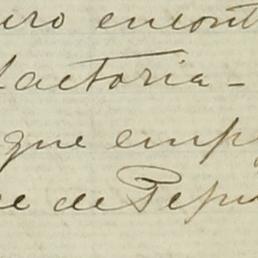 uro encont
factoria-
que emp
ce de Pepu